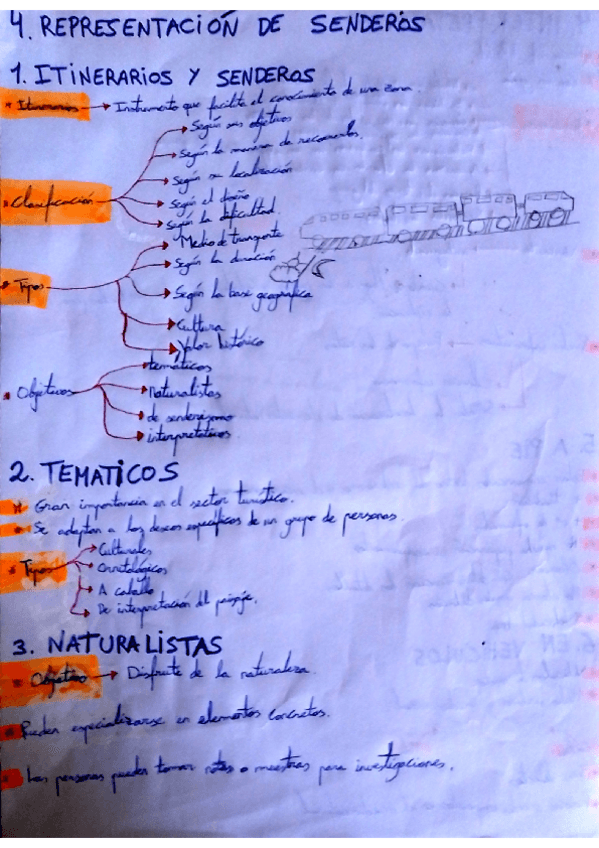 4. REPRESENTACIÓN DE SENDEROS
1. ITINERARIOS Y SENDEROS
* Itinerarios → Instrumento que facilita el conocimiento de una zona.
→ Según sus objetivos
→ Según la manera de recorrerlos.
→ Según su localización
• Clasificación
→ Según el diseño
→ Según la dificultad.
→ Medio de transporte
→ Según la duración
* Tipos
→ Según la base geográfica
→ Cultura
→ Valor histórico
→ temáticos
* Objetivos
→ Naturalistas
→ de senderismo
→ interpretativos.
2. TEMATICOS
* Gran importancia en el sector turístico.
* Se adaptan a los deseos específicos de un grupo de personas.
→ Culturales
* Tipos → Ornitológicos
→ A caballo
→ De interpretación del paisaje.
3. NATURALISTAS
* Objetivo → Disfrute de la naturaleza.
* Pueden especializarse en elementos concretos.
* Las personas pueden tomar notas o muestras para investigaciones.